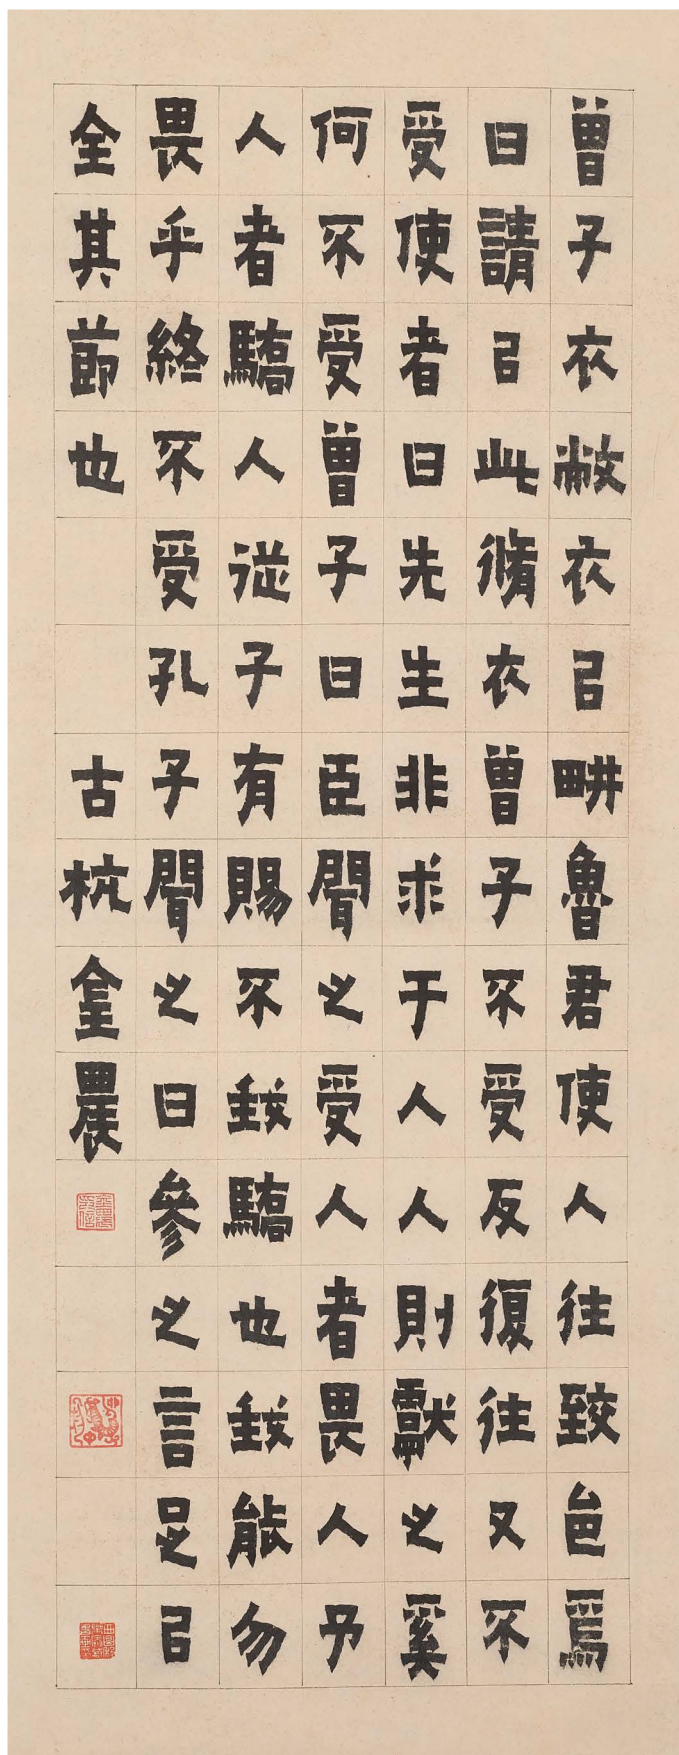 曾子衣敝衣㠯畊魯君使人往致邑焉
曰請㠯此脩衣曾子不受反復往又不
受使者曰先生非求于人人則獻之奚
何不受曾子曰臣聞之受人者畏人予
人者驕人從子有賜不我驕也我能勿
畏乎終不受孔子聞之曰參之言足㠯
全其節也 古杭金農